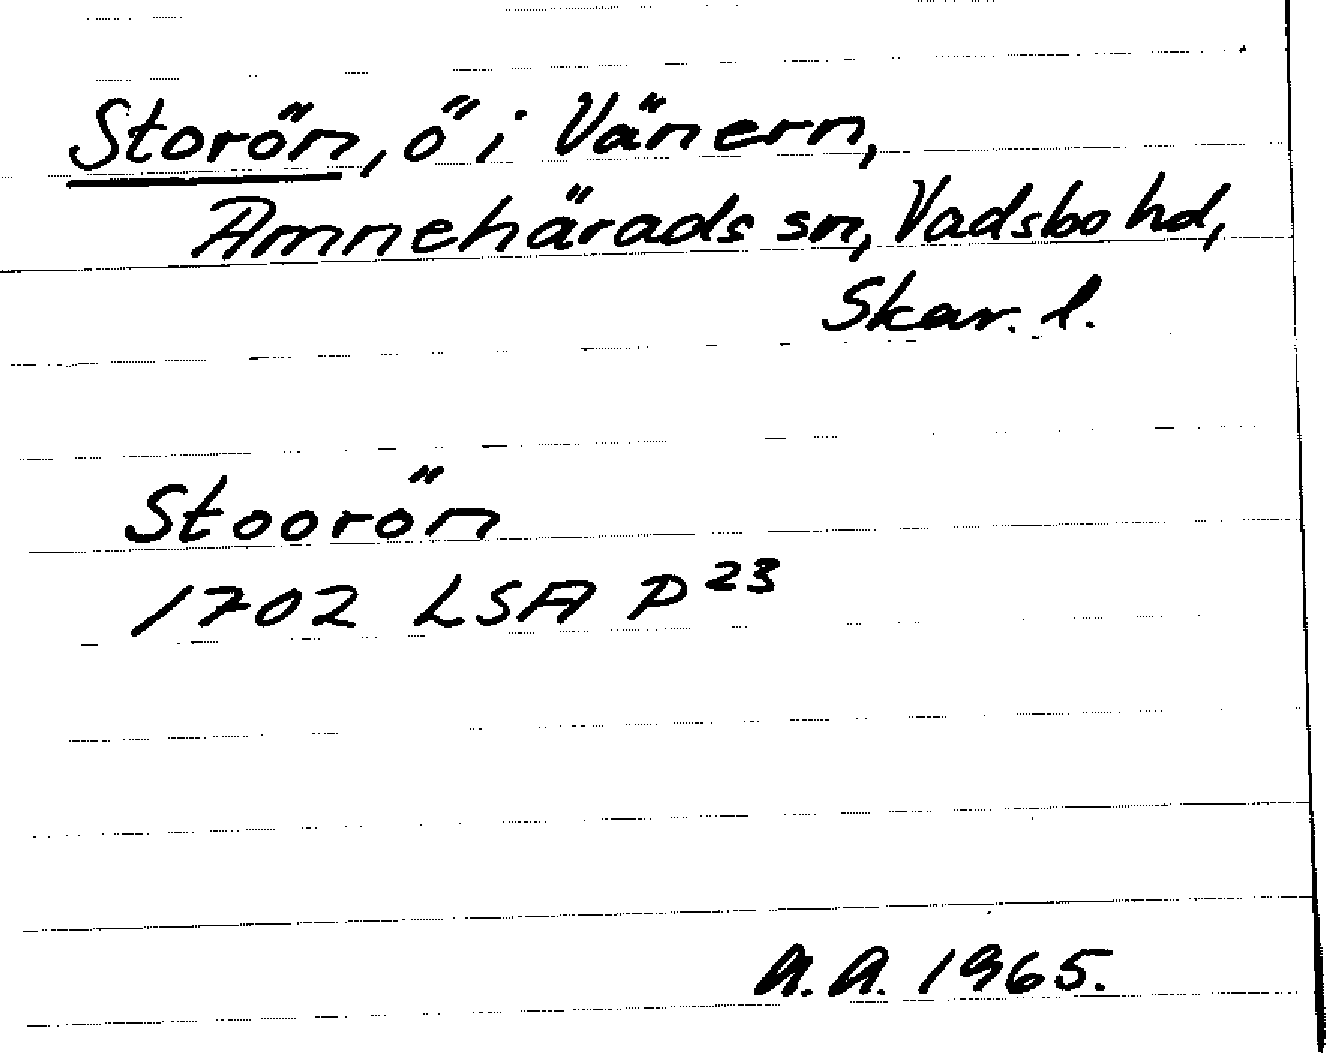 Storön, ö i Vänern,
Amnehärads sn, Vadsbo hd,
Skar. l.
Stoorön
1702 LSA P 23
A.A. 1965.